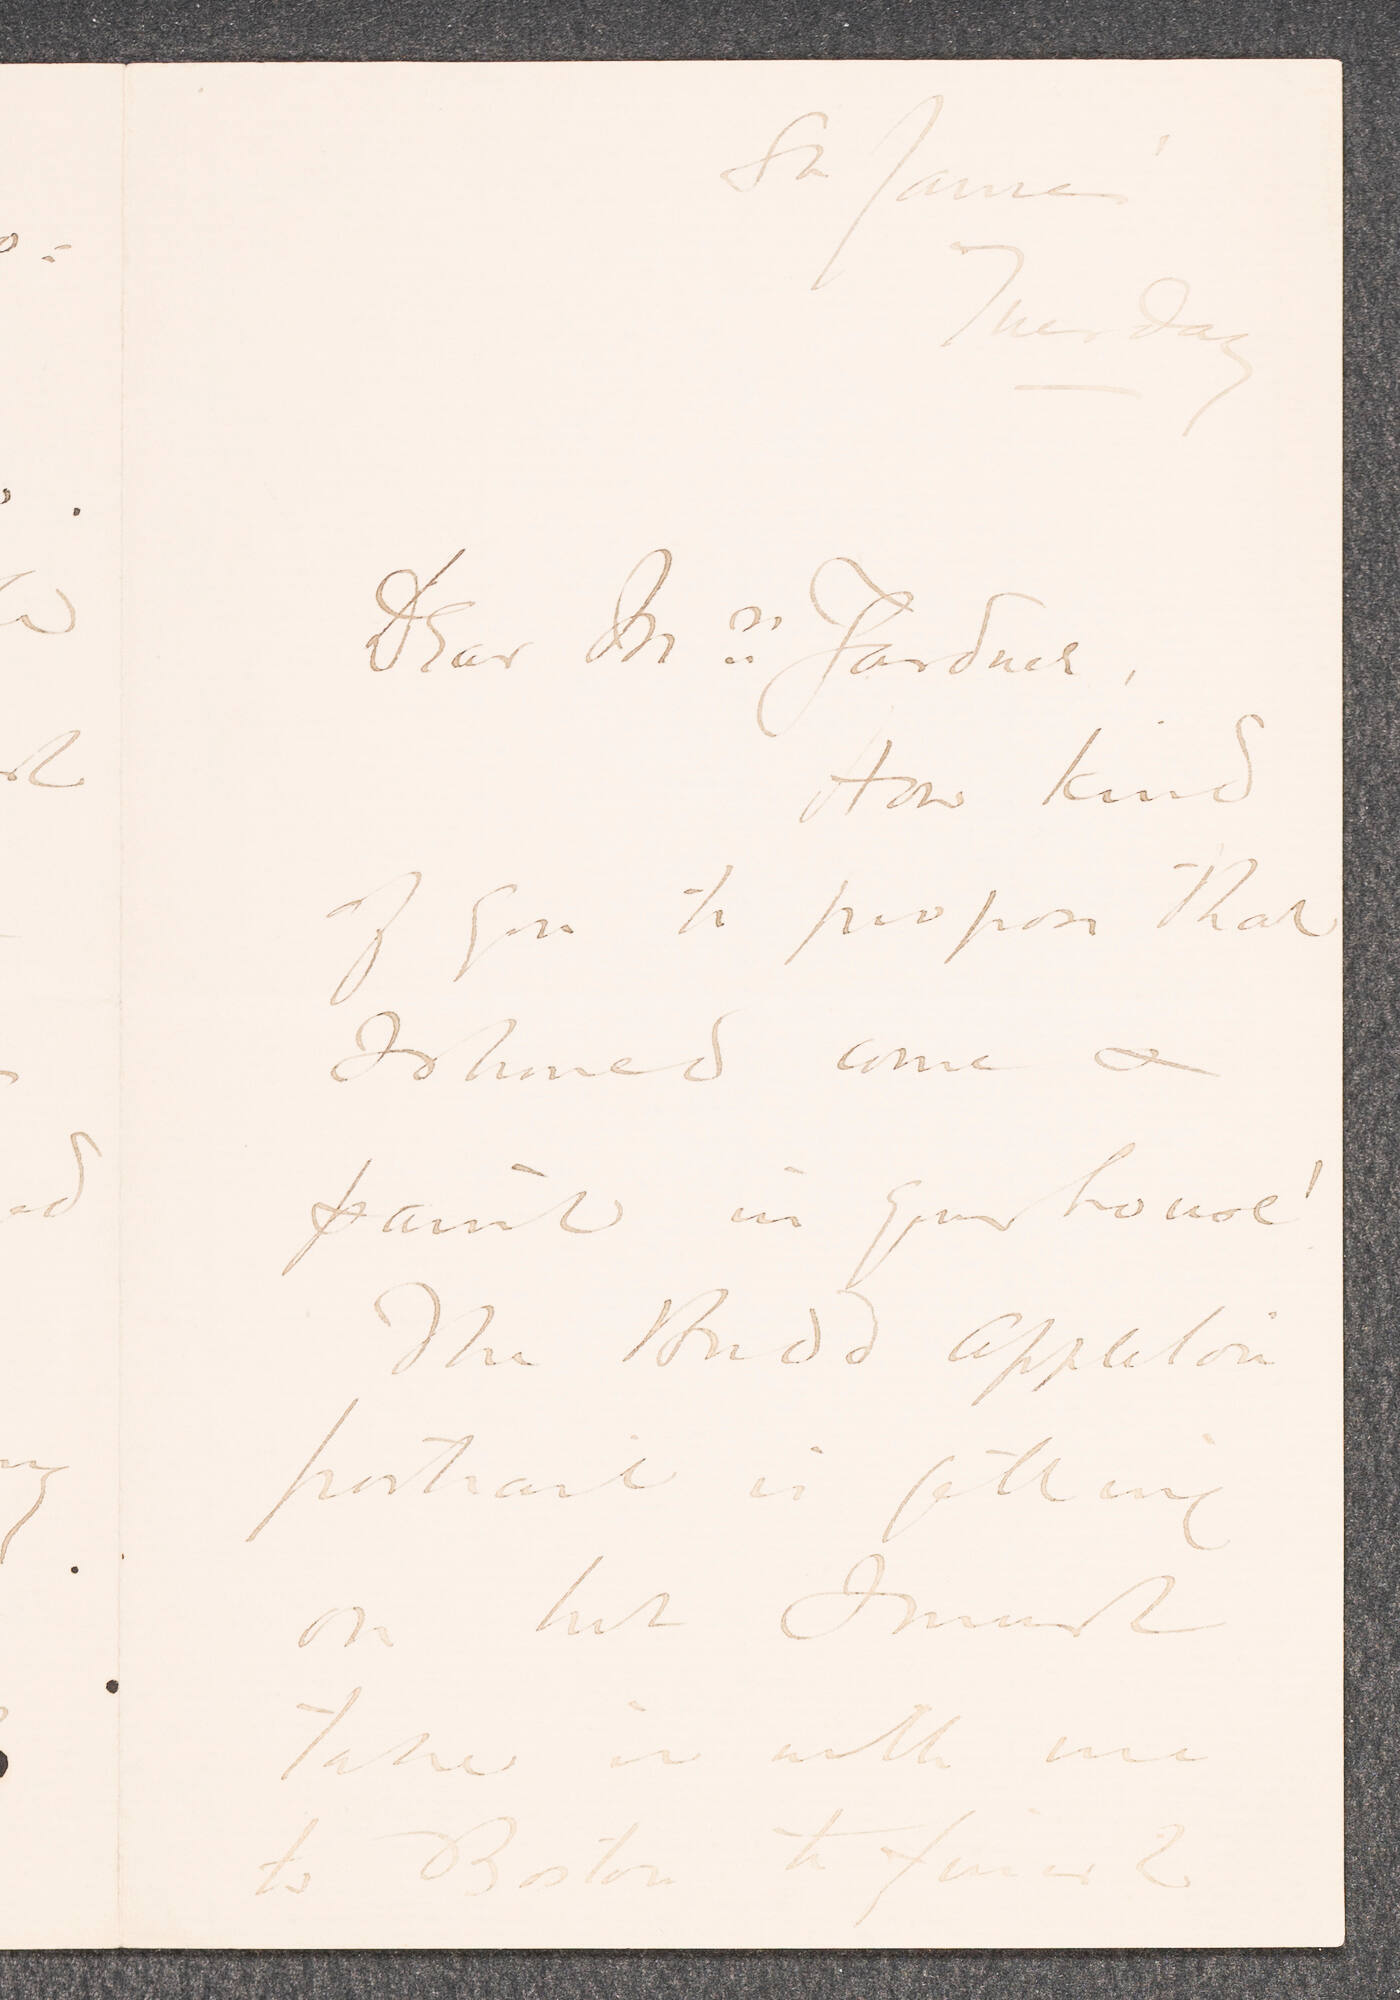 St James'
Tuesday
Dear Mrs Gardner,
How kind
of you to propose that
I should come &
paint in your house!
The Budd Appleton
portrait is getting
on but I must
take it with me
to Boston to finish